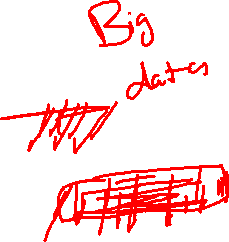 Big
datas